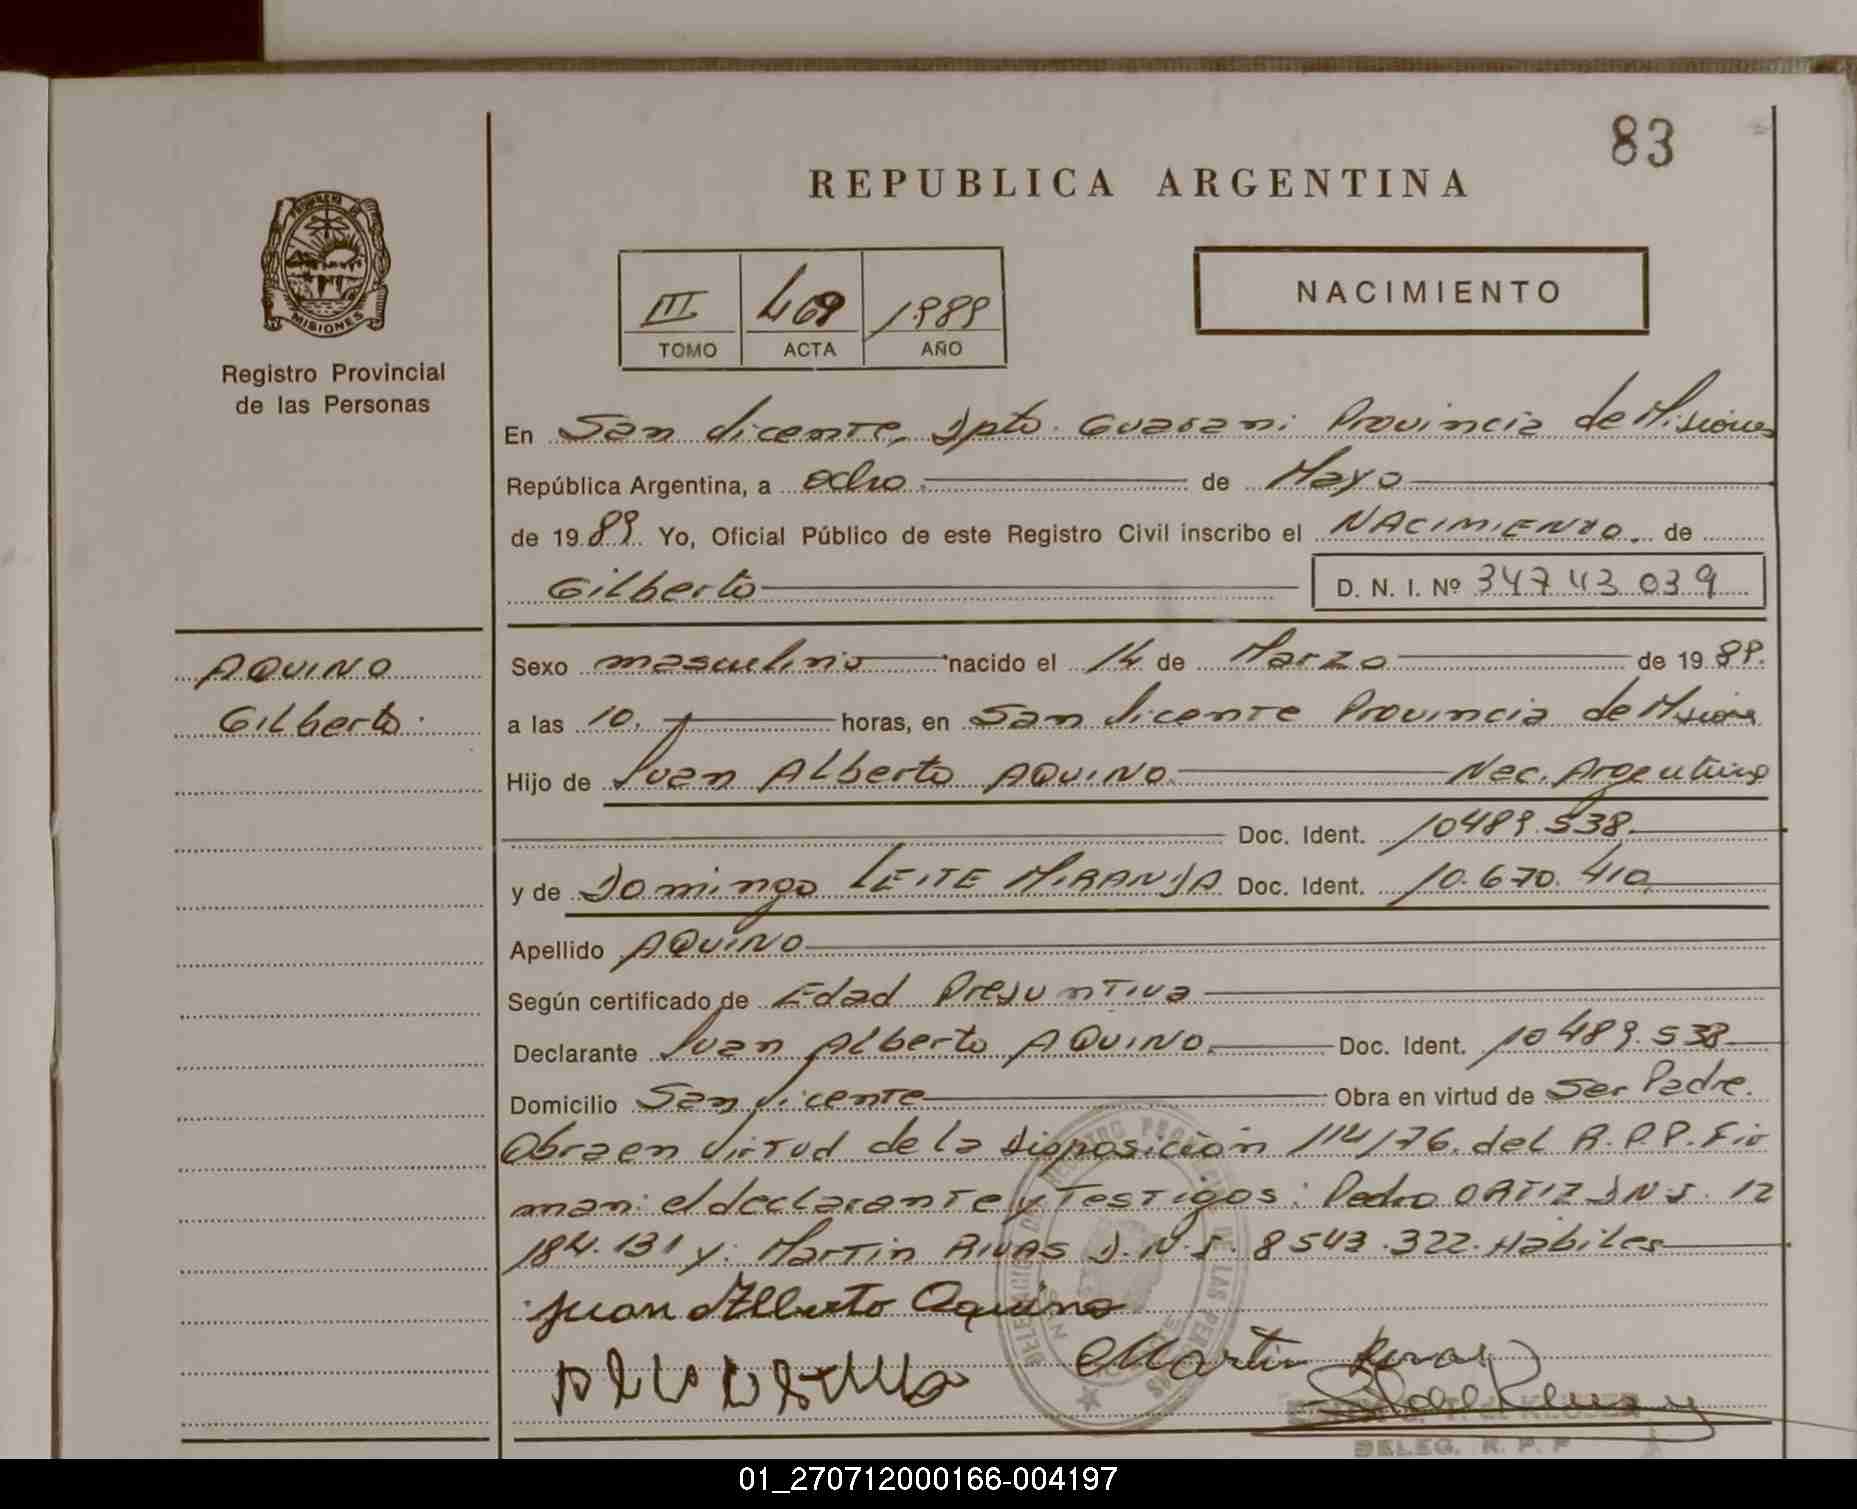 83
REPUBLICA ARGENTINA
PROVINCIA DE
MISIONES
Registro Provincial
de las Personas
III 469 1989
TOMO ACTA AÑO
NACIMIENTO
En San Vicente, Dpto. Guarani Provincia de Misiones
República Argentina, a ocho de Mayo
de 1989. Yo, Oficial Público de este Registro Civil inscribo el NACIMIENTO. de
Gilberto D. N. I. Nº 34743039
AQUINO
Gilberto.
Sexo masculino nacido el 14 de Marzo de 1989.
a las 10. horas, en San Vicente Provincia de Misiones
Hijo de Juan Alberto AQUINO Nac. Argentino
Doc. Ident. 10489.538.
y de Domingo LEITE MIRANDA Doc. Ident. 10.670.410
Apellido AQUINO
Según certificado de Edad Presuntiva
Declarante Juan Alberto AQUINO. Doc. Ident. 10489.538
Domicilio San Vicente Obra en virtud de Ser Padre.
Obra en virtud de la Disposición 114/76. del R.P.P. Fir
man: el declarante y Testigos: Pedro ORTIZ D.N.I. 12
184.131 y: Martin RIVAS D.N.I. 8543.322. Habiles
Juan Alberto Aquino
Martin Rivas
DELEG. R. P. P
01_270712000166-004197